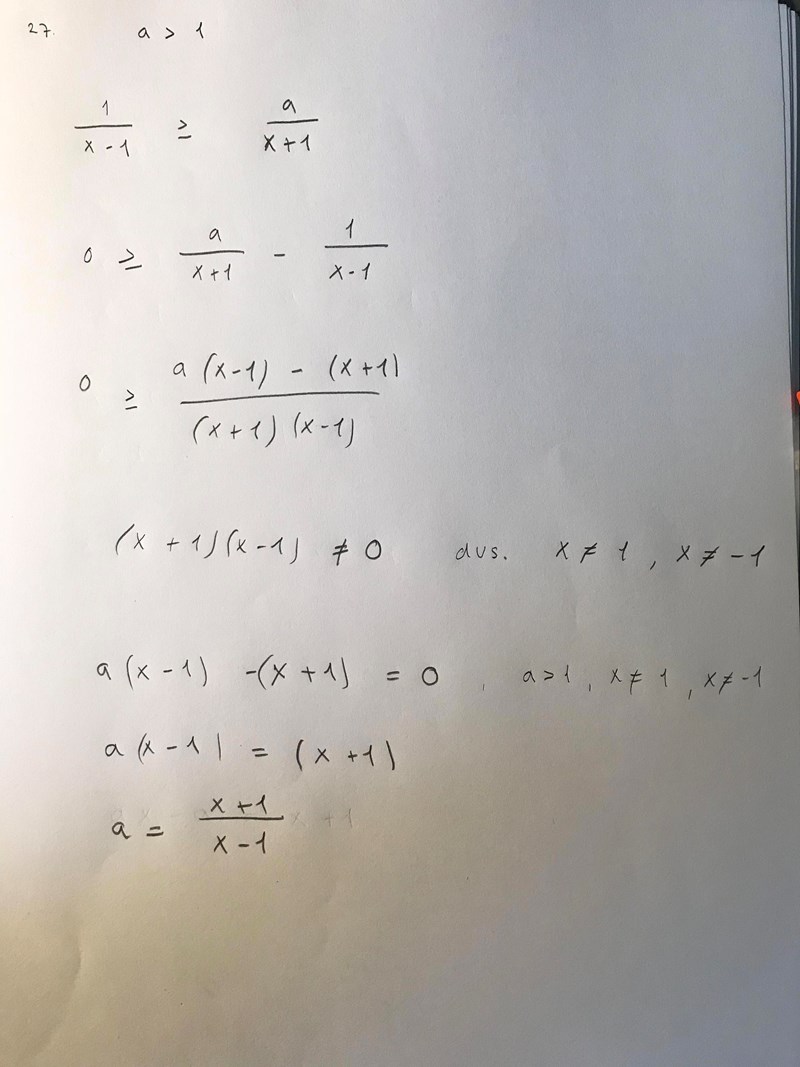 27. a > 1
1/(x - 1) ≥ a/(x + 1)
0 ≥ a/(x+1) - 1/(x-1)
0 ≥ (a (x-1) - (x+1))/((x+1) (x-1))
(x + 1)(x - 1) ≠ 0 dvs. x ≠ 1 , x ≠ -1
a (x - 1) -(x + 1) = 0 , a > 1 , x ≠ 1 , x ≠ -1
a (x - 1) = (x + 1)
a = (x+1)/(x-1)